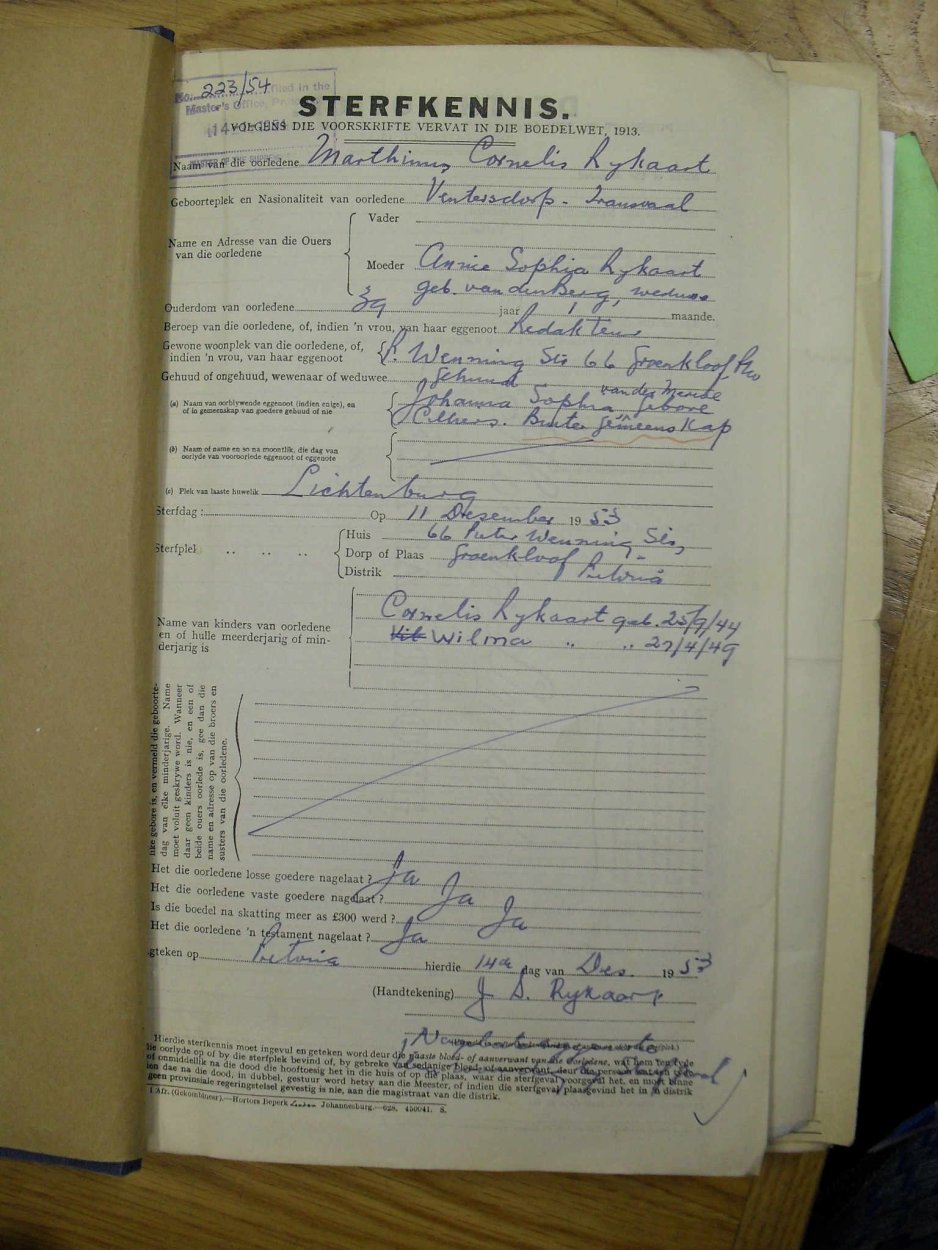 No. 223/54 filed in the
Master's Office,
14
STERFKENNIS.
VOLGENS DIE VOORSKRIFTE VERVAT IN DIE BOEDELWET, 1913.
Naam van die oorledene Marthinus Cornelis Rykaart
Geboorteplek en Nasionaliteit van oorledene Ventersdorp - Transvaal
Vader
Name en Adresse van die Ouers
van die oorledene
Moeder Annie Sophia Rykaart
geb. van den Berg, weduwe
Ouderdom van oorledene 39 jaar maande.
Beroep van die oorledene, of, indien 'n vrou, van haar eggenoot Redakteur
Gewone woonplek van die oorledene, of,
indien 'n vrou, van haar eggenoot P. Wenning Str 66 Groenkloof Pta
Gehuud of ongehuud, wewenaar of weduwee gehuud
(a) Naam van oorblywende eggenoot (indien enige), en
of in gemeenskap van goedere gehuud of nie
Johanna Sophia van der Merwe gebore
Cilliers. Buite gemeenskap
(b) Naam of name en so na moontlik, die dag van
oorlyde van vooroorlede eggenoot of eggenote
(c) Plek van laaste huwelik Lichtenburg
Sterfdag : Op 11 Desember 1953
Huis 66 Pieter Wenning Str,
Sterfplek Dorp of Plaas Groenkloof Pretoria
Distrik
Name van kinders van oorledene
en of hulle meerderjarig of min-
derjarig is
Cornelis Rykaart geb. 25/9/44
Wilma " " 27/4/49
like gebore is, en vermeld die geboorte-
dag van elke minderjarige. Name
moet voluit geskrywe word. Wanneer
daar geen kinders is nie, en een of
beide ouers oorlede is, gee dan die
name en adresse op van die broers en
susters van die oorledene.
Het die oorledene losse goedere nagelaat ? Ja
Het die oorledene vaste goedere nagelaat ? Ja
Is die boedel na skatting meer as £300 werd ? Ja
Het die oorledene 'n testament nagelaat ? Ja
gteken op Pretoria hierdie 14de dag van Des. 1953
(Handtekening) J S. Rykaart
Hierdie sterfkennis moet ingevul en geteken word deur die naaste bloed- of aanverwant van die oorledene, wat ten tyde
die oorlyde op of by die sterfplek bevind of, by gebreke van sedanige bloed- of aanverwant, deur die persoon wat
of onmiddellik na die dood die hooftoesig het in die huis of op die plaas, waar die sterfgeval voorgeval het, en moet binne
tien dae na die dood, in dubbel, gestuur word hetsy aan die Meester, of indien die sterfgeval plaasgevind het in 'n distrik
geen provinsiale regeringstelsel gevestig is nie, aan die magistraat van die distrik.
1 Afr. (Gekombineer).—Hortors Beperk Johannesburg.—028. 450041. S.